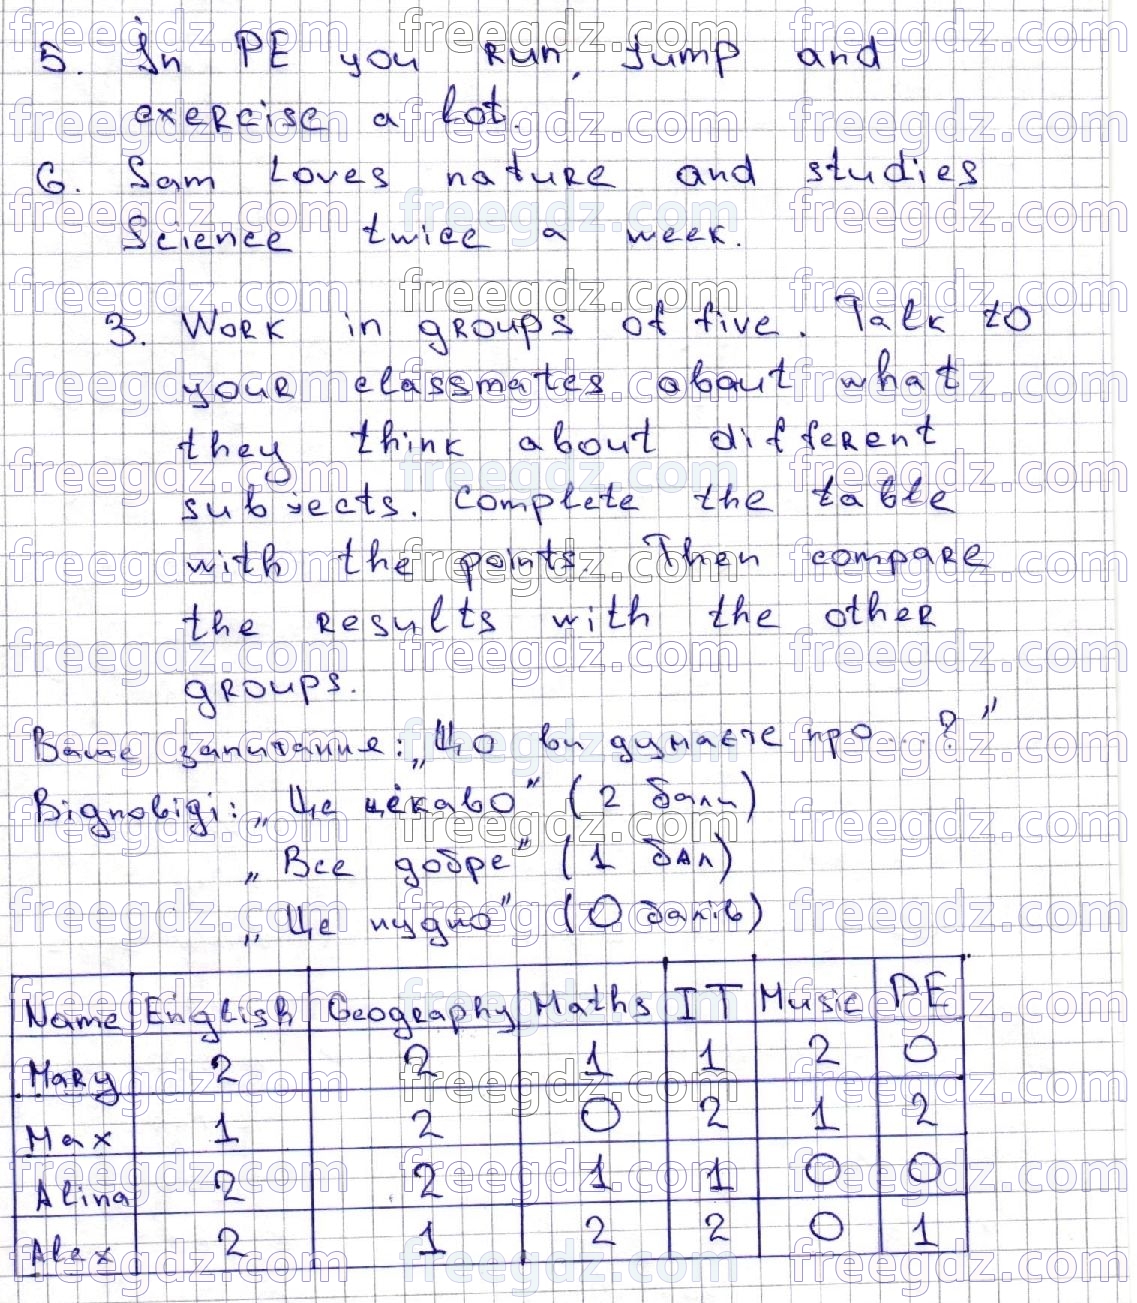 5. In PE you run, jump and
exercise a lot.
6. Sam loves nature and studies
Science twice a week.
3. Work in groups of five. Talk to
your classmates about what
they think about different
subjects. Complete the table
with the points. Then compare
the results with the other
groups.
Ваше запитання: „Що ви думаєте про...?"
Відповіді: „Це цікаво" (2 бали)
„Все добре" (1 бал)
„Це нудно" (0 балів)
Name English Geography Maths IT Music PE
Mary 2 2 1 1 2 0
Max 1 2 0 2 1 2
Alina 2 2 1 1 0 0
Alex 2 1 2 2 0 1
freegdz.com